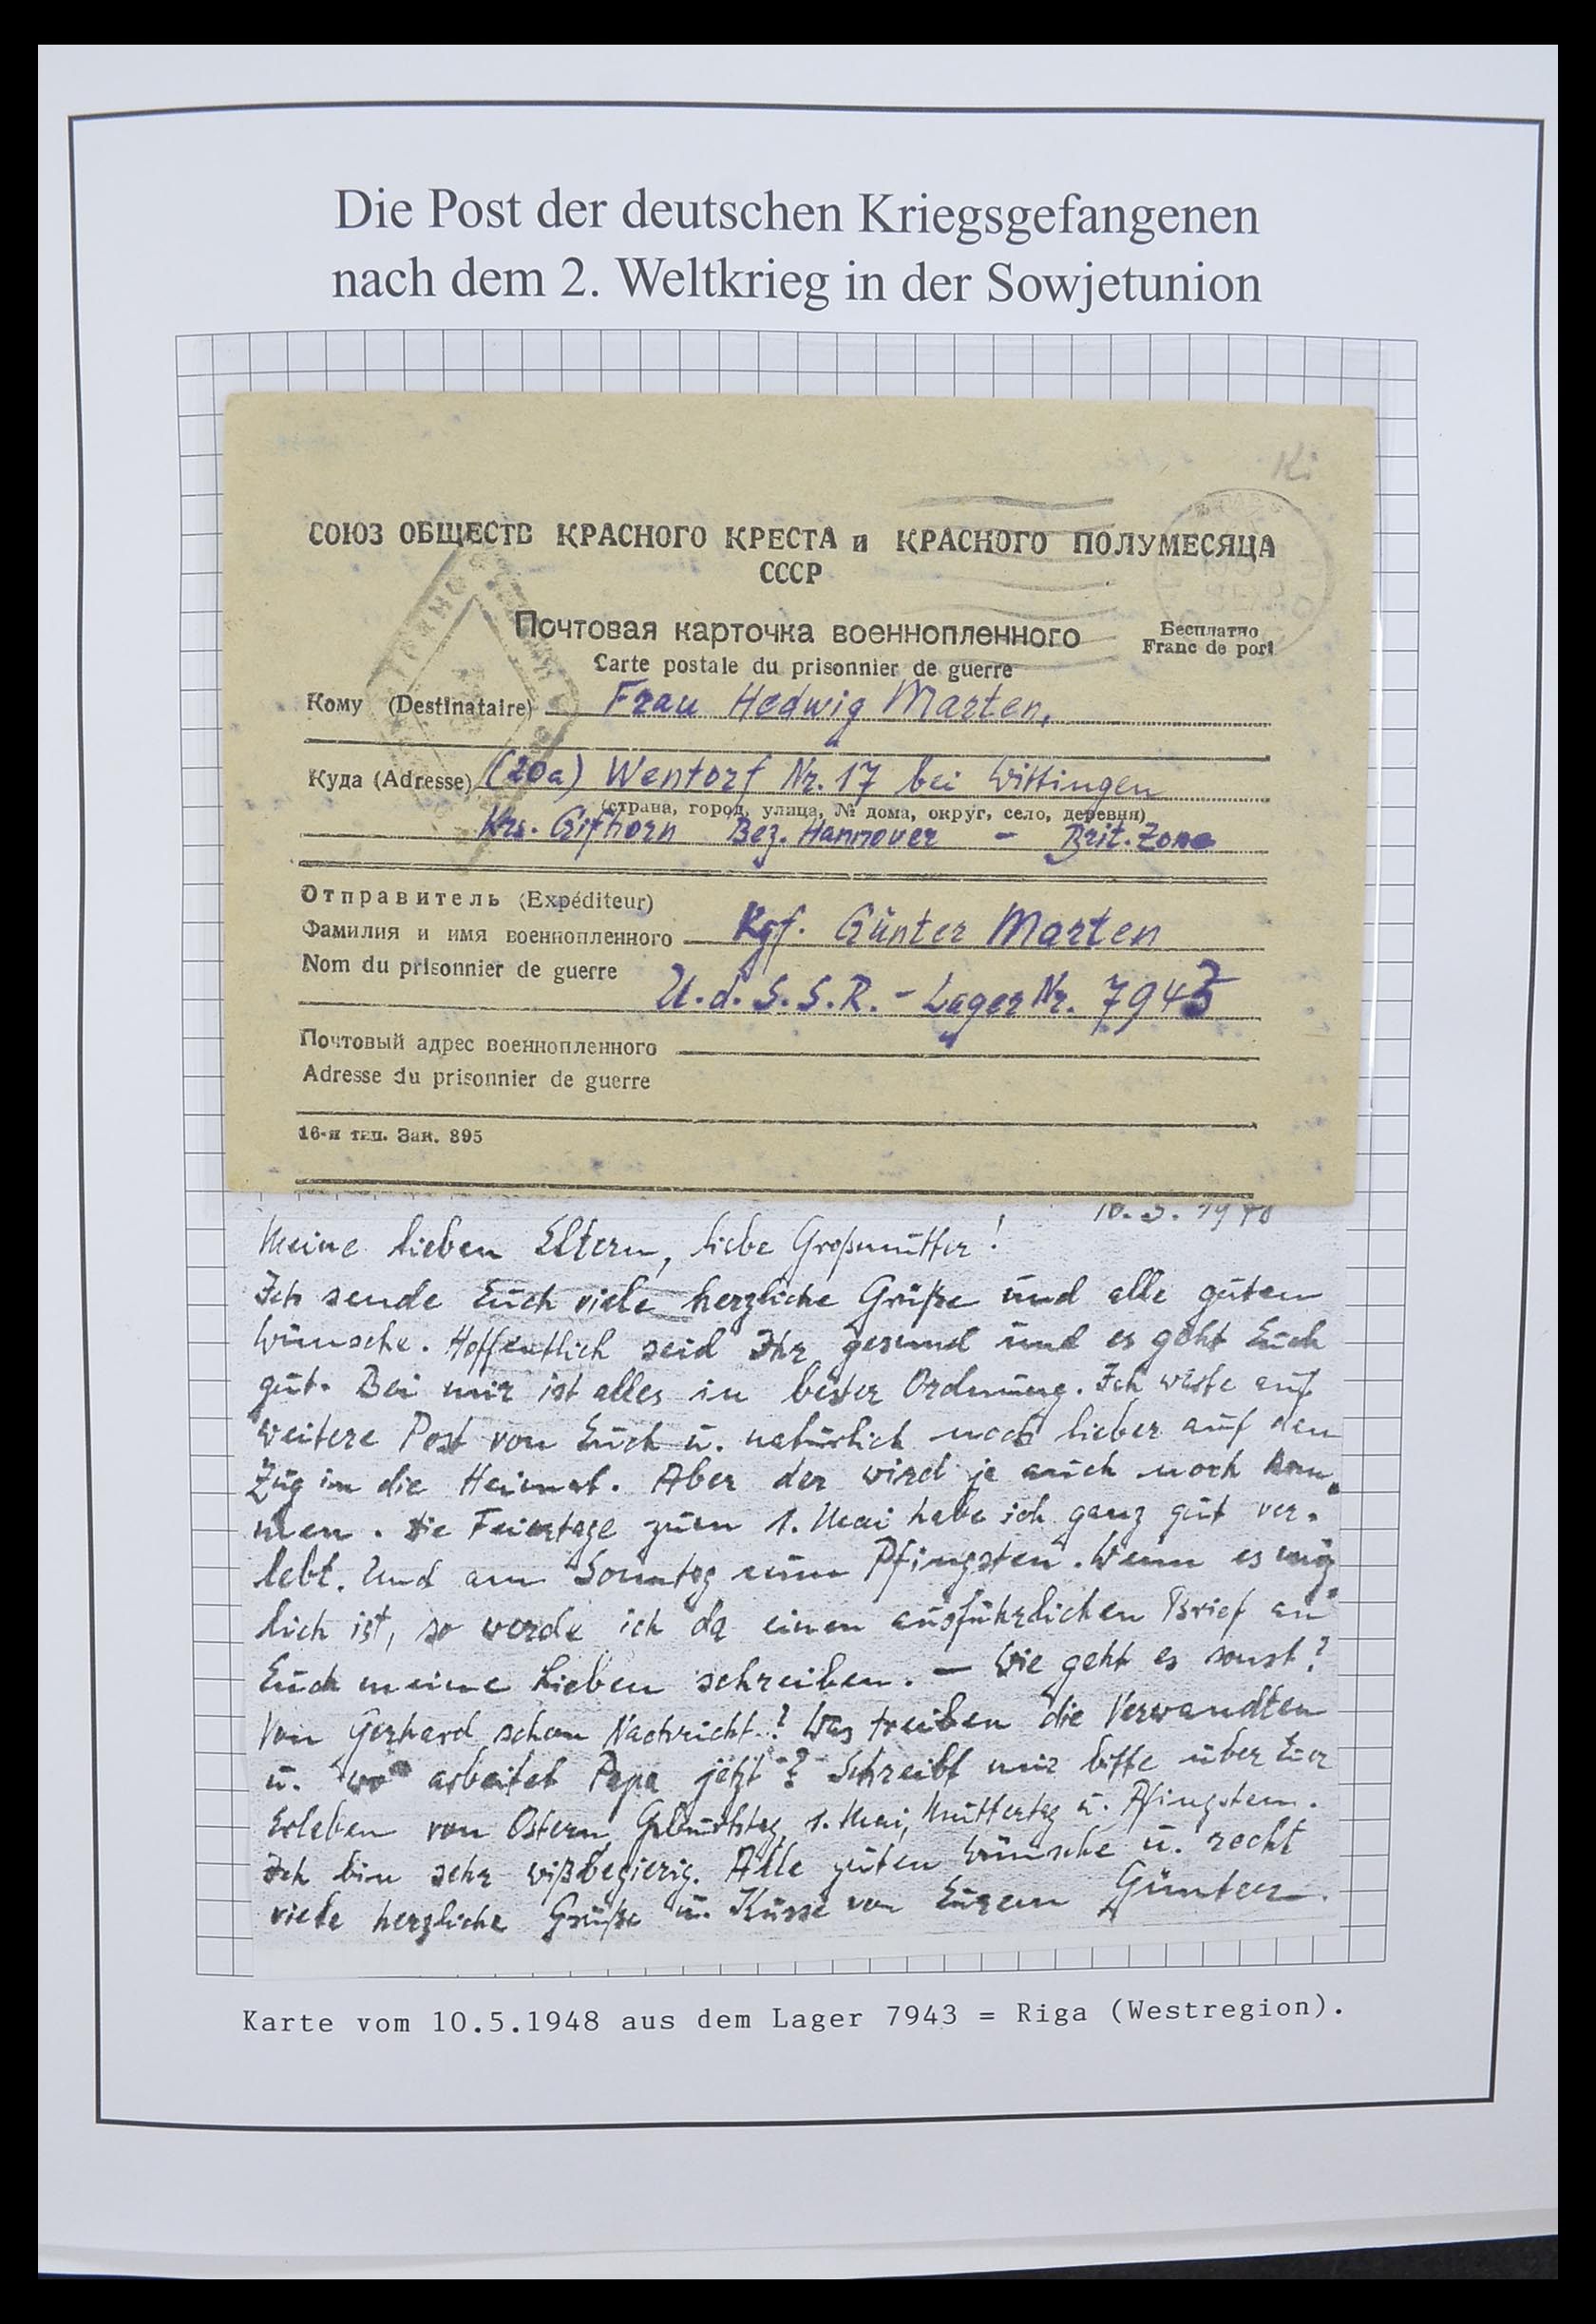 Die Post der deutschen Kriegsgefangenen
nach dem 2. Weltkrieg in der Sowjetunion
Ki
СОЮЗ ОБЩЕСТВ КРАСНОГО КРЕСТА и КРАСНОГО ПОЛУМЕСЯЦА
СССР
Почтовая карточка военнопленного
Бесплатно
Carte postale du prisonnier de guerre
Franc de port
Кому (Destinataire) Frau Hedwig Marten,
Куда (Adresse) (20a) Wentorf Nr. 17 bei Wittingen
(страна, город, улица, № дома, округ, село, деревня)
Krs. Gifhorn Bez. Hannover - Brit. Zone
Отправитель (Expéditeur)
Фамилия и имя военнопленного Kgf. Günter Marten
Nom du prisonnier de guerre
U.d.S.S.R. - Lager Nr. 7943
Почтовый адрес военнопленного
Adresse du prisonnier de guerre
16-я тип. Зак. 895
10.5.1948
Meine lieben Eltern, liebe Großmutter!
Ich sende Euch viele herzliche Grüße und alle guten
Wünsche. Hoffentlich seid Ihr gesund und es geht Euch
gut. Bei mir ist alles in bester Ordnung. Ich warte auf
weitere Post von Euch u. natürlich noch lieber auf den
Zug in die Heimat. Aber der wird ja auch noch kom-
men. Die Feiertage zum 1. Mai habe ich ganz gut ver-
lebt. Und am Sonntag nun Pfingsten. Wenn es mög-
lich ist, so werde ich da einen ausführlichen Brief an
Euch meine Lieben schreiben. — Wie geht es sonst?
Von Gerhard schon Nachricht? Was treiben die Verwandten
u. wo arbeitet Papa jetzt? Schreibt mir bitte über Euer
Erleben von Ostern, Geburtstag, 1. Mai, Muttertag u. Pfingsten.
Ich bin sehr wißbegierig. Alle guten Wünsche u. recht
viele herzliche Grüße u. Küsse von Eurem Günter.
Karte vom 10.5.1948 aus dem Lager 7943 = Riga (Westregion).